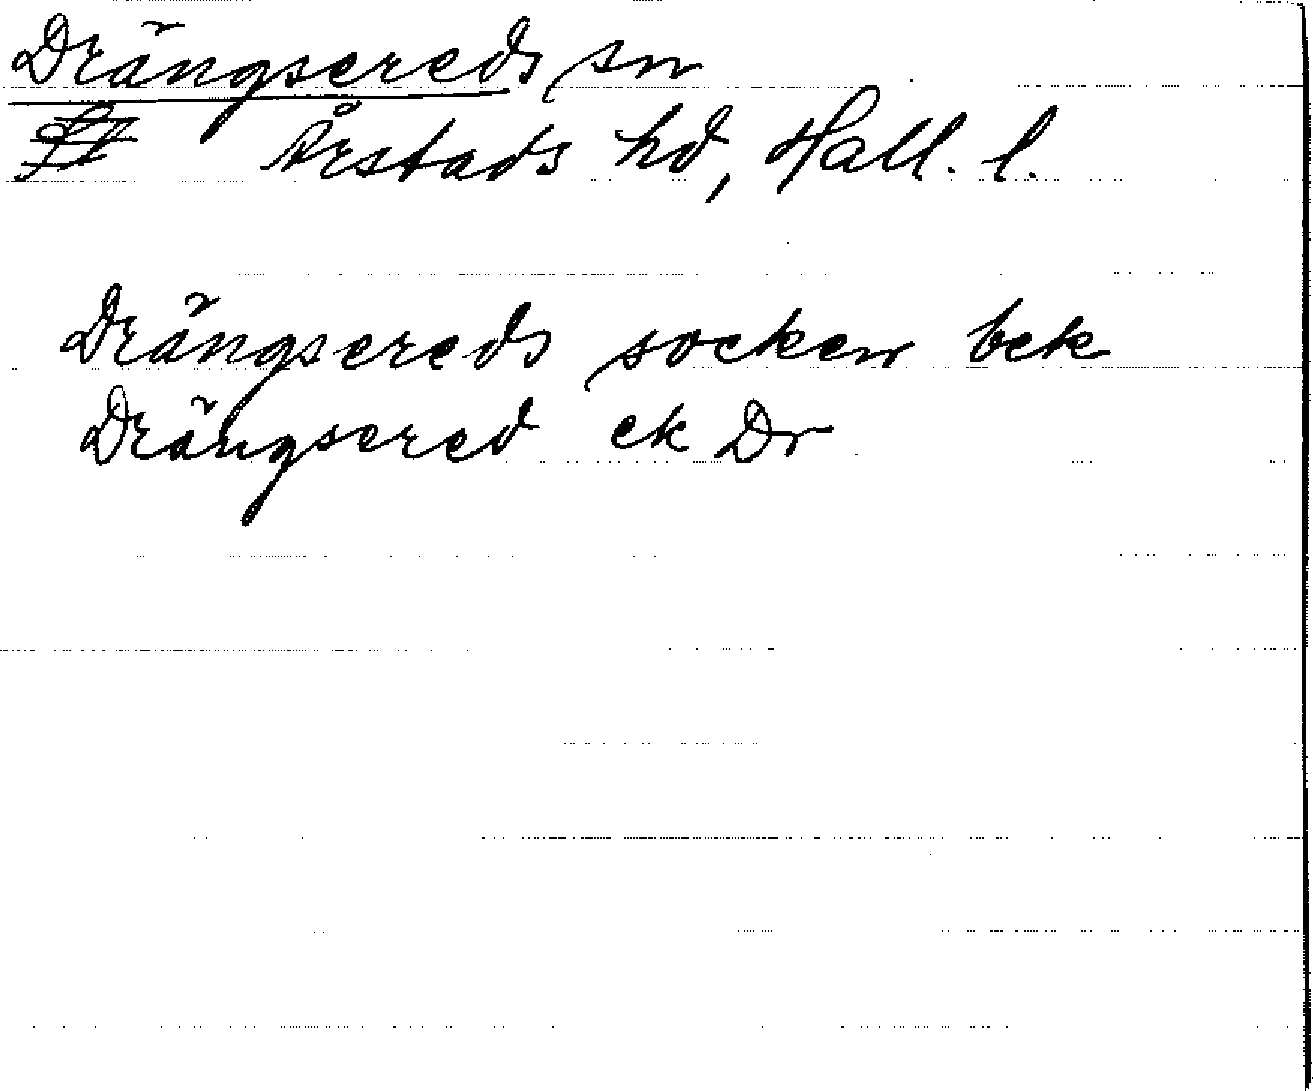 Drängsereds sn
Årstads hd, Hall. l.
Drängsereds socken bek
Drängsered ek Dr